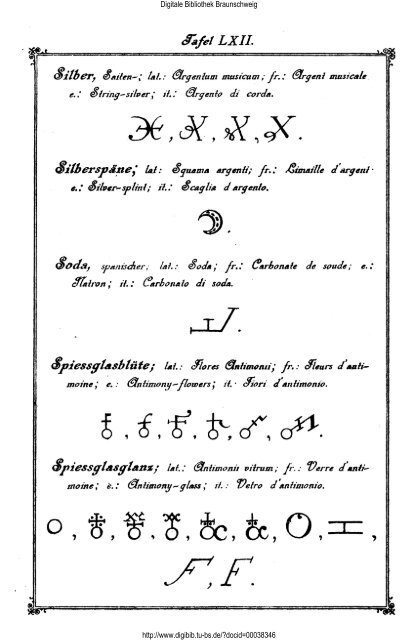 Digitale Bibliothek Braunschweig
Tafel LXII.
Silber, Saiten-; lat.: Argentum musicum; fr.: Argent musicale
e.: String-silver; it.: Argento di corda.
Silberspäne; lat: Squama argenti; fr.: Limaille d'argent
e.: Silver-splint; it.: Scaglia d argento.
Soda, spanischer; lat.: Soda; fr.: Carbonate de soude; e.:
Natron; it.: Carbonato di soda.
Spiessglasblüte; lat.: Flores Antimonii; fr.: Fleurs d'anti-
moine; e.: Antimony-flowers; it.: Fiori d'antimonio.
Spiessglasglanz; lat.: Antimonii vitrum; fr.: Verre d'anti-
moine; e.: Antimony-glass; it.: Vetro d'antimonio.
F, F.
http://www.digibib.tu-bs.de/?docid=00038346